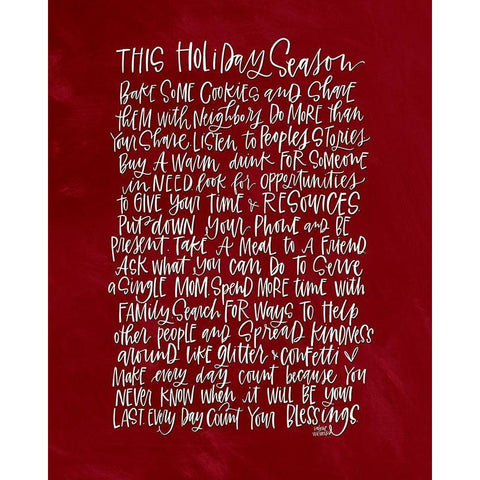 THIS HOLIDAY SEASON
BAKE SOME COOKIES AND SHARE
THEM WITH NEIGHBORS. DO MORE THAN
YOUR SHARE. LISTEN TO PEOPLES STORIES
BUY A WARM DRINK FOR SOMEONE
IN NEED. LOOK FOR OPPORTUNITIES
TO GIVE YOUR TIME & RESOURCES.
PUT DOWN YOUR PHONE AND BE
PRESENT. TAKE A MEAL TO A FRIEND.
ASK WHAT YOU CAN DO TO SERVE
A SINGLE MOM. SPEND MORE TIME WITH
FAMILY. SEARCH FOR WAYS TO HELP
OTHER PEOPLE AND SPREAD KINDNESS
AROUND LIKE GLITTER & CONFETTI
MAKE EVERY DAY COUNT BECAUSE YOU
NEVER KNOW WHEN IT WILL BE YOUR
LAST. EVERY DAY COUNT YOUR BLESSINGS.